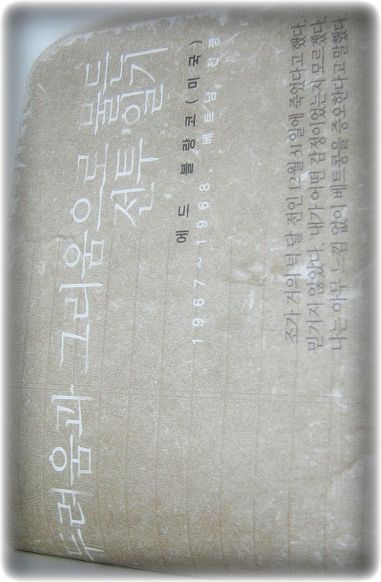 두려움과 그리움으로 물든
전투 일기
에드 블랑코 ( 미국 )
1967~1968, 베트남 전쟁
조가 거의 넉 달 전인 12월 31일에 죽었다고 했다.
믿기지 않았다. 내가 어떤 감정이었는지 모르겠다.
나는 아무 느낌 없이 베트콩을 증오한다고 말했다.